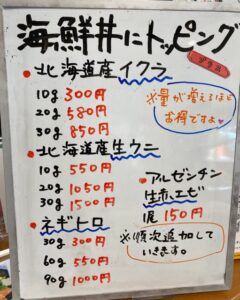 海鮮丼にトッピング
プラス
・北海道産イクラ
10g 300円
20g 580円
30g 850円
※量が増えるほど
お得ですよ
・北海道産生ウニ
10g 550円
20g 1050円
30g 1500円
・アルゼンチン
生赤エビ
1尾 150円
・ネギトロ
30g 300円
60g 550円
90g 1000円
※順次追加して
いきます。